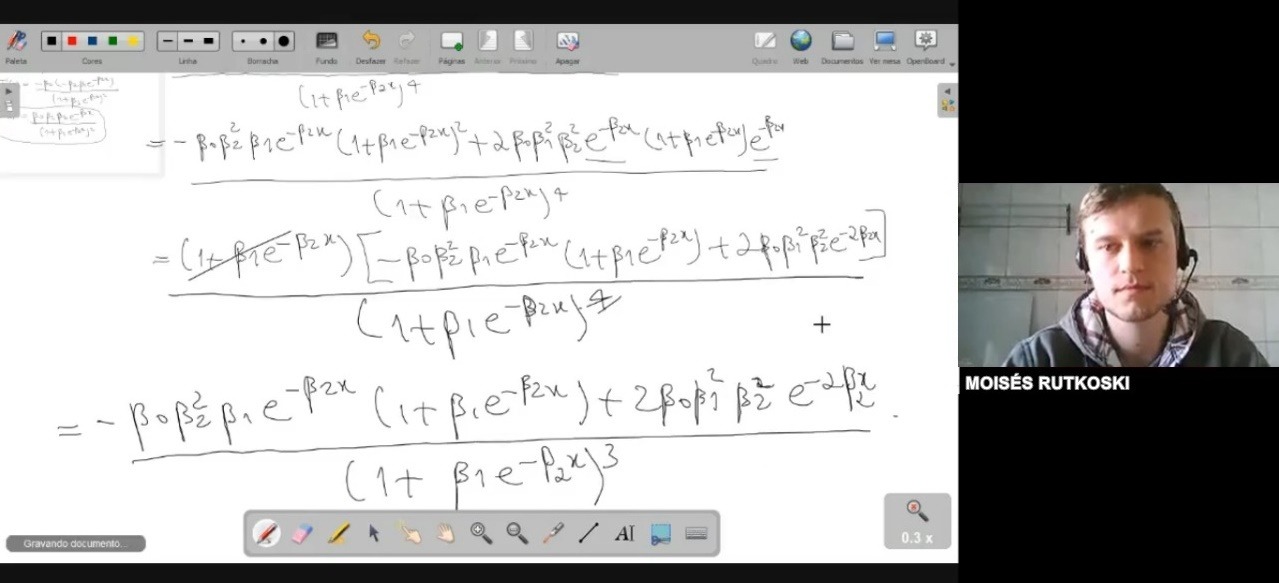 Paleta Cores Linha Borracha Fundo Desfazer Refazer Páginas Anterior Próxima Apagar Quadro Web Documentos Ver mesa OpenBoard
(1+β₁e^{-β₂x})^4
= - β₀β₂²β₁e^{-β₂x}(1+β₁e^{-β₂x})²+2β₀β₁²β₂²e^{-β₂x}(1+β₁e^{-β₂x})e^{-β₂x}
(1+β₁e^{-β₂x})^4
= (1+β₁e^{-β₂x})[-β₀β₂²β₁e^{-β₂x}(1+β₁e^{-β₂x})+2β₀β₁²β₂²e^{-2β₂x}]
(1+β₁e^{-β₂x})^4
= - β₀β₂²β₁e^{-β₂x}(1+β₁e^{-β₂x})+2β₀β₁²β₂²e^{-2β₂x}.
(1+β₁e^{-β₂x})^3
MOISÉS RUTKOSKI
AI
Gravando documento...
0.3 x